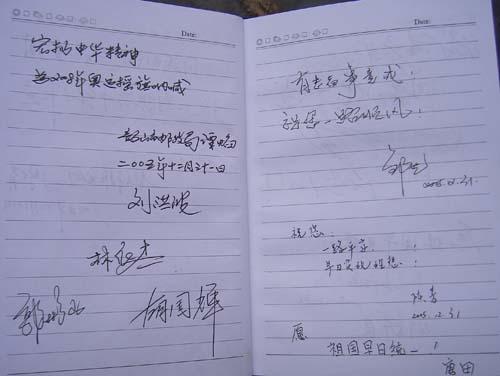 Date:
宏扬中华精神
为2008年奥运摇旗呐喊
韶山市邮政局 谭
二00五年十二月三十一日
刘洪波
林
国辉
Date:
有志者事竟成！
祝您一路顺风！
2005.12.31.
祝您：
一路平安！
早日实现理想！
2005.12.31
愿
祖国早日统一！
唐田